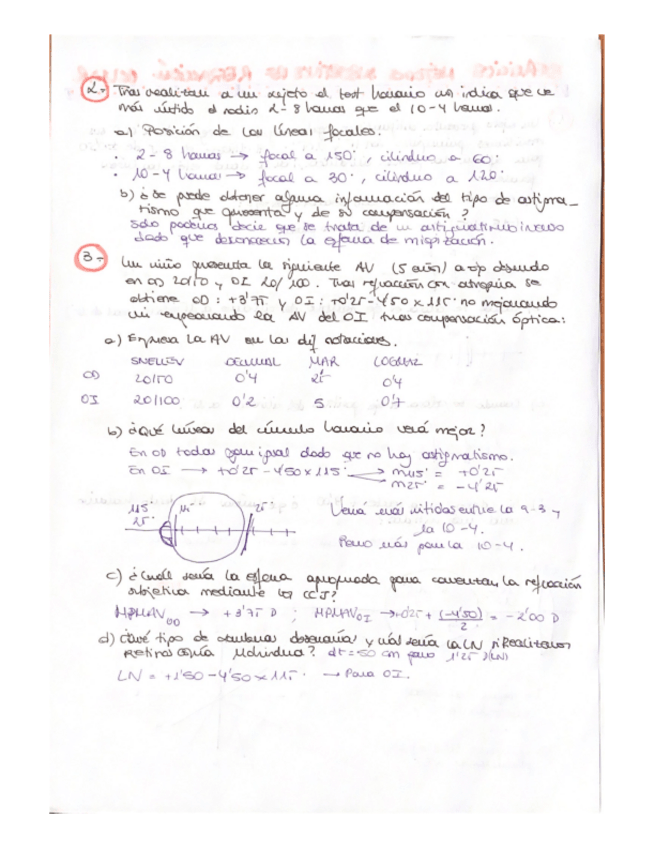 2.- Tras realizar a un sujeto el test horario nos indica que ve
más nítido el radio 2-8 horas que el 10-4 horas.
a) Posición de las líneas focales.
· 2-8 horas → focal a 150°, cilindro a 60°
· 10-4 horas → focal a 30°, cilindro a 120°
b) ¿Se puede obtener alguna información del tipo de astigma-
tismo que presenta y de su compensación?
Solo podemos decir que se trata de un astigmatismo
dado que desconocemos la esfera de miopización.
3.- Un niño presenta la siguiente AV (5 años) a ojo desnudo
en OD 20/50 y OI 20/100. Tras refracción con atropina se
obtiene OD: +3'75 y OI: +0'25-4'50 x 115° no mejorando
la AV del OI tras compensación óptica:
a) Expresa la AV en las dif notaciones.
SNELLEN DECIMAL MAR LOGMAR
OD 20/50 0'4 2'5 0'4
OI 20/100 0'2 5 0'7
b) ¿Qué líneas del círculo horario verá mejor?
En OD todas igual dado que no hay astigmatismo.
En OI → +0'25 - 4'50 x 115° → m115° = +0'25
m25° = -4'25
115° 25°
25°
Vería más nítidas entre la 9-3 y
la 10-4.
Pero más para la 10-4.
c) ¿Cuál sería la esfera apropiada para comenzar la refracción
subjetiva mediante los CCJ?
MPMAV OD → +3'75 D ; MPMAV OI → +0'25 + (-4'50)/2 = -2'00 D
d) ¿Qué tipo de sombras observarías y cuál sería la LN si Realizamos
Retinoscopía Mohindra? dt = 50 cm pero 1'25 (LN)
LN = +1'50 - 4'50 x 115° → Para OI.